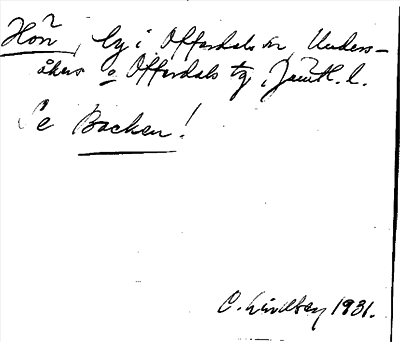 Hōn, by i Offerdals sn, Unders-
åkers o Offerdals tg, Jämtl. l.
Se Backen!
C. Lindberg 1931.